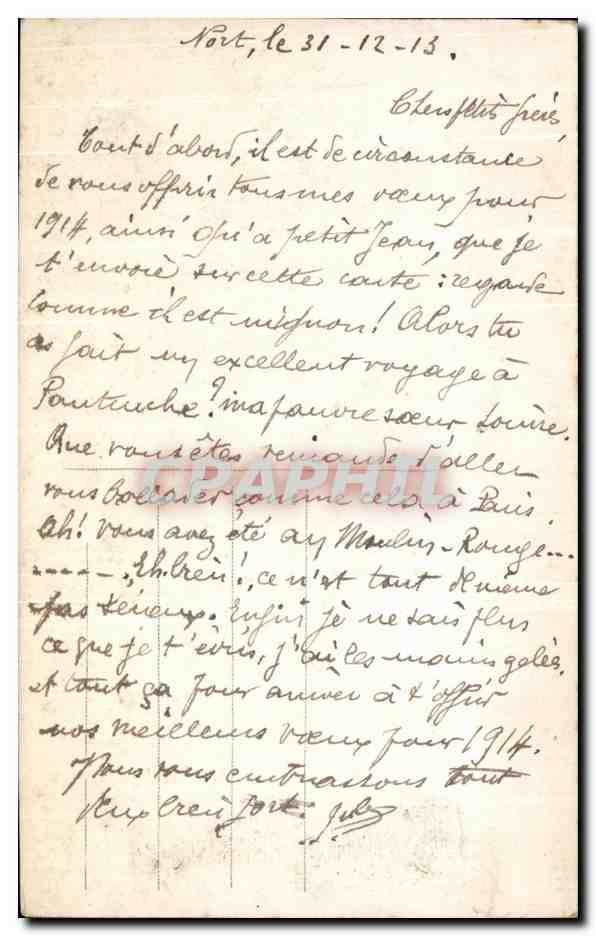 Nort, le 31-12-13.
Chers petits frères,
Tout d'abord, il est de circonstance
de vous offrir tous mes vœux pour
1914, ainsi qu'a petit Jean, que je
t'envoie sur cette carte : regarde
comme il est mignon ! Alors tu
as fait un excellent voyage à
Pantruche ? ma pauvre sœur Louise.
Que vous êtes veinards d'aller
vous ballader comme cela à Paris.
Ah ! vous avez été au Moulin-Rouge...
------, Eh bien !, ce n'est tout de même
pas sérieux. Enfin je ne sais plus
ce que je t'écris, j'ai les mains gelées.
et tout ça pour arriver à t'offrir
nos meilleurs vœux pour 1914.
Nous vous embrassons tout
deux bien fort. Jules
CPAPHIL